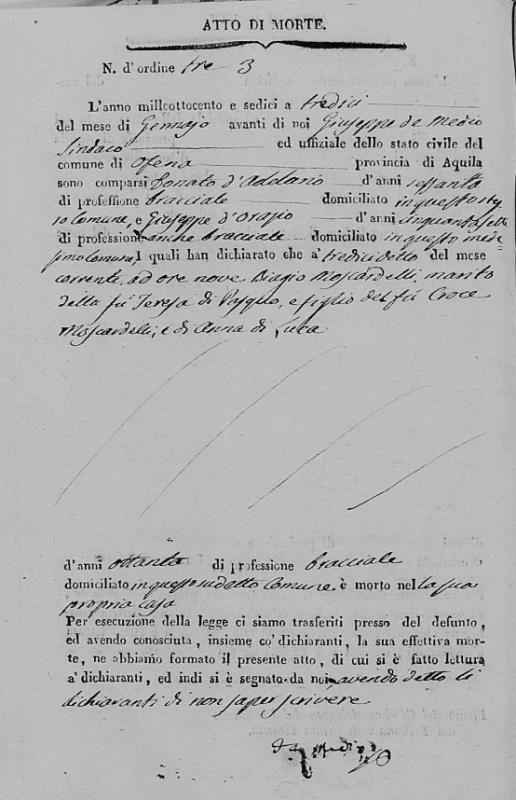 ATTO DI MORTE.
N. d'ordine tre - 3
L'anno millcottocento e sedici a tredici
del mese di Gennajo avanti di noi Giuseppe de Medio
Sindaco ed uffiziale dello stato civile del
comune di Ofena provincia di Aquila
sono comparsi Donato d'Addario d'anni sessanta
di professione bracciale domiciliato in questo stes
so Comune, e Giuseppe d'Orazio d'anni cinquantasette
di professione anche bracciale domiciliato in questo mede
simo Comune, I quali han dichiarato che a' tredici detto del mese
corrente, ad ore nove Biagio Moscardelli, marito
della fù Teresa di Pasquo, e figlio del fù Croce
Moscardelli, e di Anna di Luca
d'anni ottanta di professione bracciale
domiciliato in questo sudetto Comune è morto nel la sua
propria casa
Per esecuzione della legge ci siamo trasferiti presso del defunto,
ed avendo conosciuta, insieme co' dichiaranti, la sua effettiva mor-
te, ne abbiamo formato il presente atto, di cui si è fatto lettura
a' dichiaranti, ed indi si è segnato da noi, avendo detto li
dichiaranti di non saper scrivere